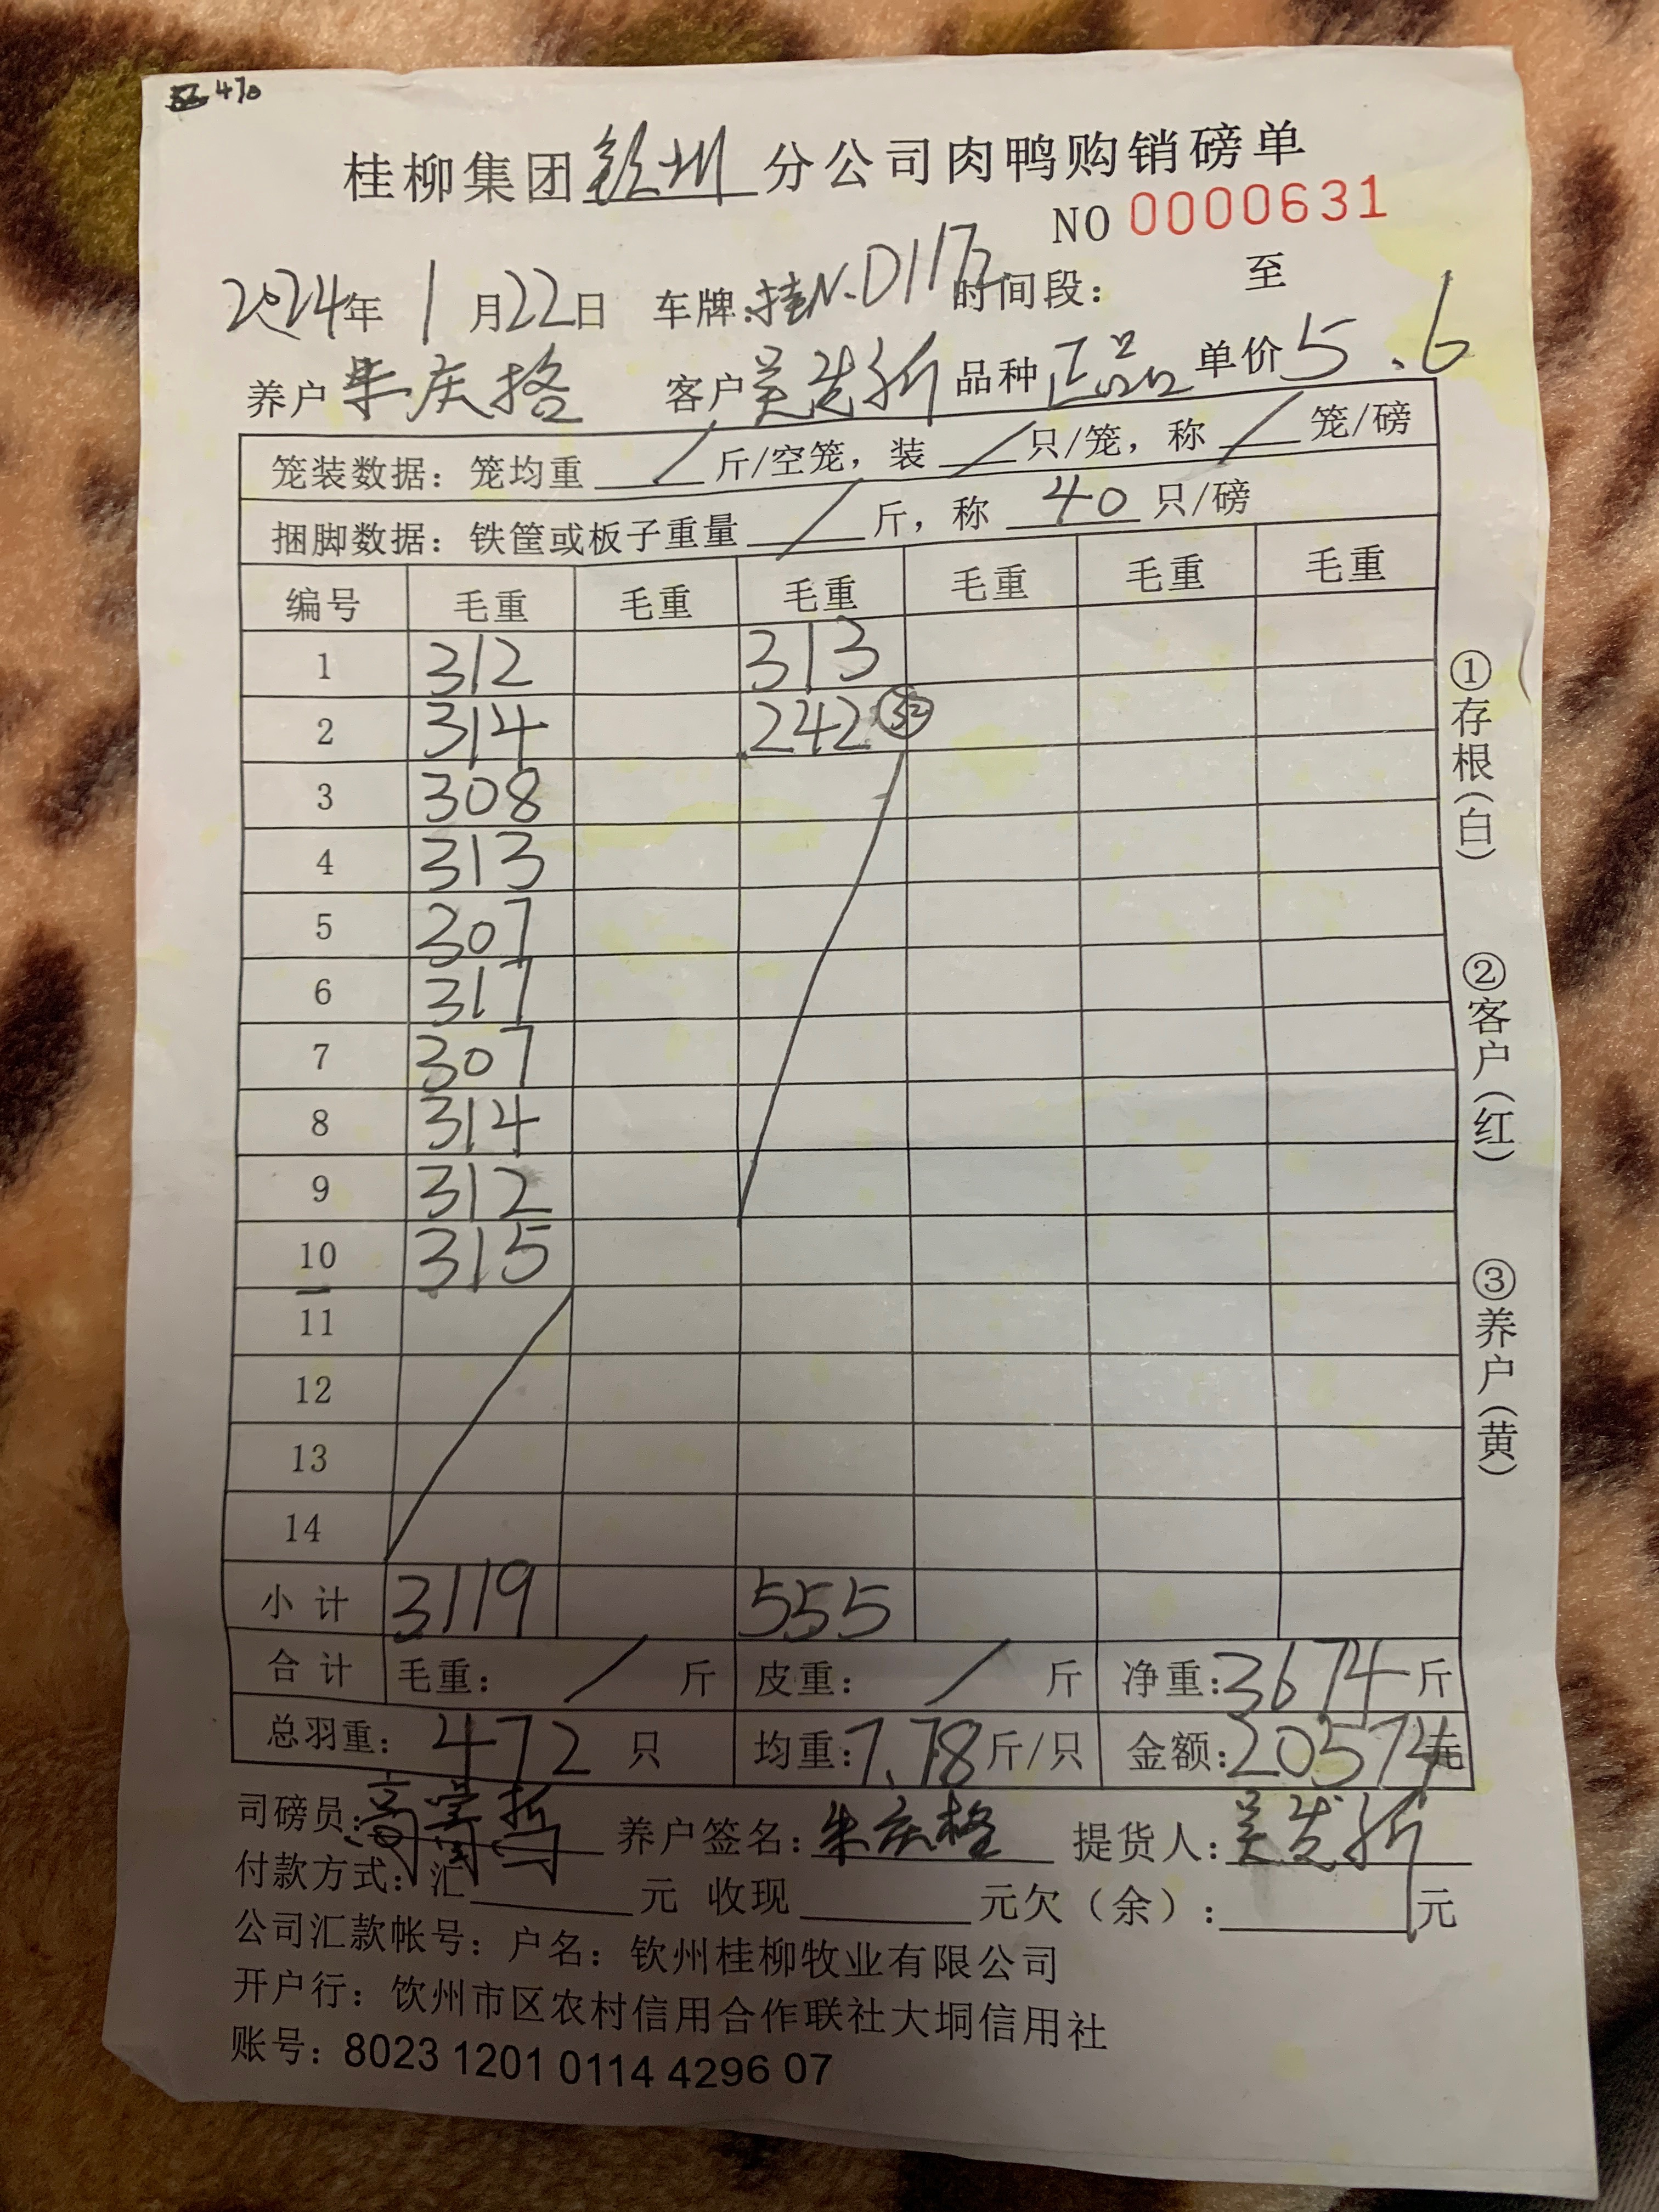 470
桂柳集团钦州分公司肉鸭购销磅单
NO 0000631
2024年1月22日 车牌:桂N.D117 时间段: 至
养户朱庆格 客户吴发新 品种正品 单价5.6
笼装数据：笼均重/斤/空笼，装/只/笼，称/笼/磅
捆脚数据：铁筐或板子重量/斤，称40只/磅
编号 毛重 毛重 毛重 毛重 毛重 毛重
1 312 313
2 314 242 32
3 308
4 313
5 307
6 317
7 307
8 314
9 312
10 315
11
12
13
14
小计 3119 555
合计 毛重：/斤 皮重：/斤 净重：3674斤
总羽重：472只 均重：7.78斤/只 金额：20574元
司磅员： 养户签名：朱庆格 提货人：吴发新
付款方式：汇 元 收现 元欠（余）： 元
公司汇款帐号：户名：钦州桂柳牧业有限公司
开户行：钦州市区农村信用合作联社大垌信用社
账号：8023 1201 0114 4296 07
①存根（白）
②客户（红）
③养户（黄）